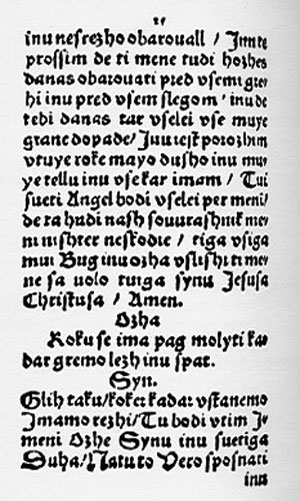 25
inu nesrezho obarouall / Jnn te
prossim de ti mene tudi hozhes
danas obarouati pred vsemi gre
hi inu pred vsem slegom / inu de
tebi danas tar vselei vse muye
grane dopade / Jnu iest porozhim
vtuye roke mayo dusho inu mur
ye tellu inu vse kar imam / Tui
sueti Angel bodi vselei per meni /
de ta hudi nash souurashnik me
ni nishter neskodie / tiga vsiga
mui Bug inu ozha vslishi ti me
ne sa uolo tuiga synu Jesusa
Christusa / Amen.
Ozha
Koku se ima pag molyti ka
dar gremo lezh inu spat.
Syn.
Glih taku / koker kadar vstanemo
Jmamo rezhi / Tu bodi vtim J
meni Ozhe Synu inu suetiga
Duha / Na tu to Vero sposnati
inu